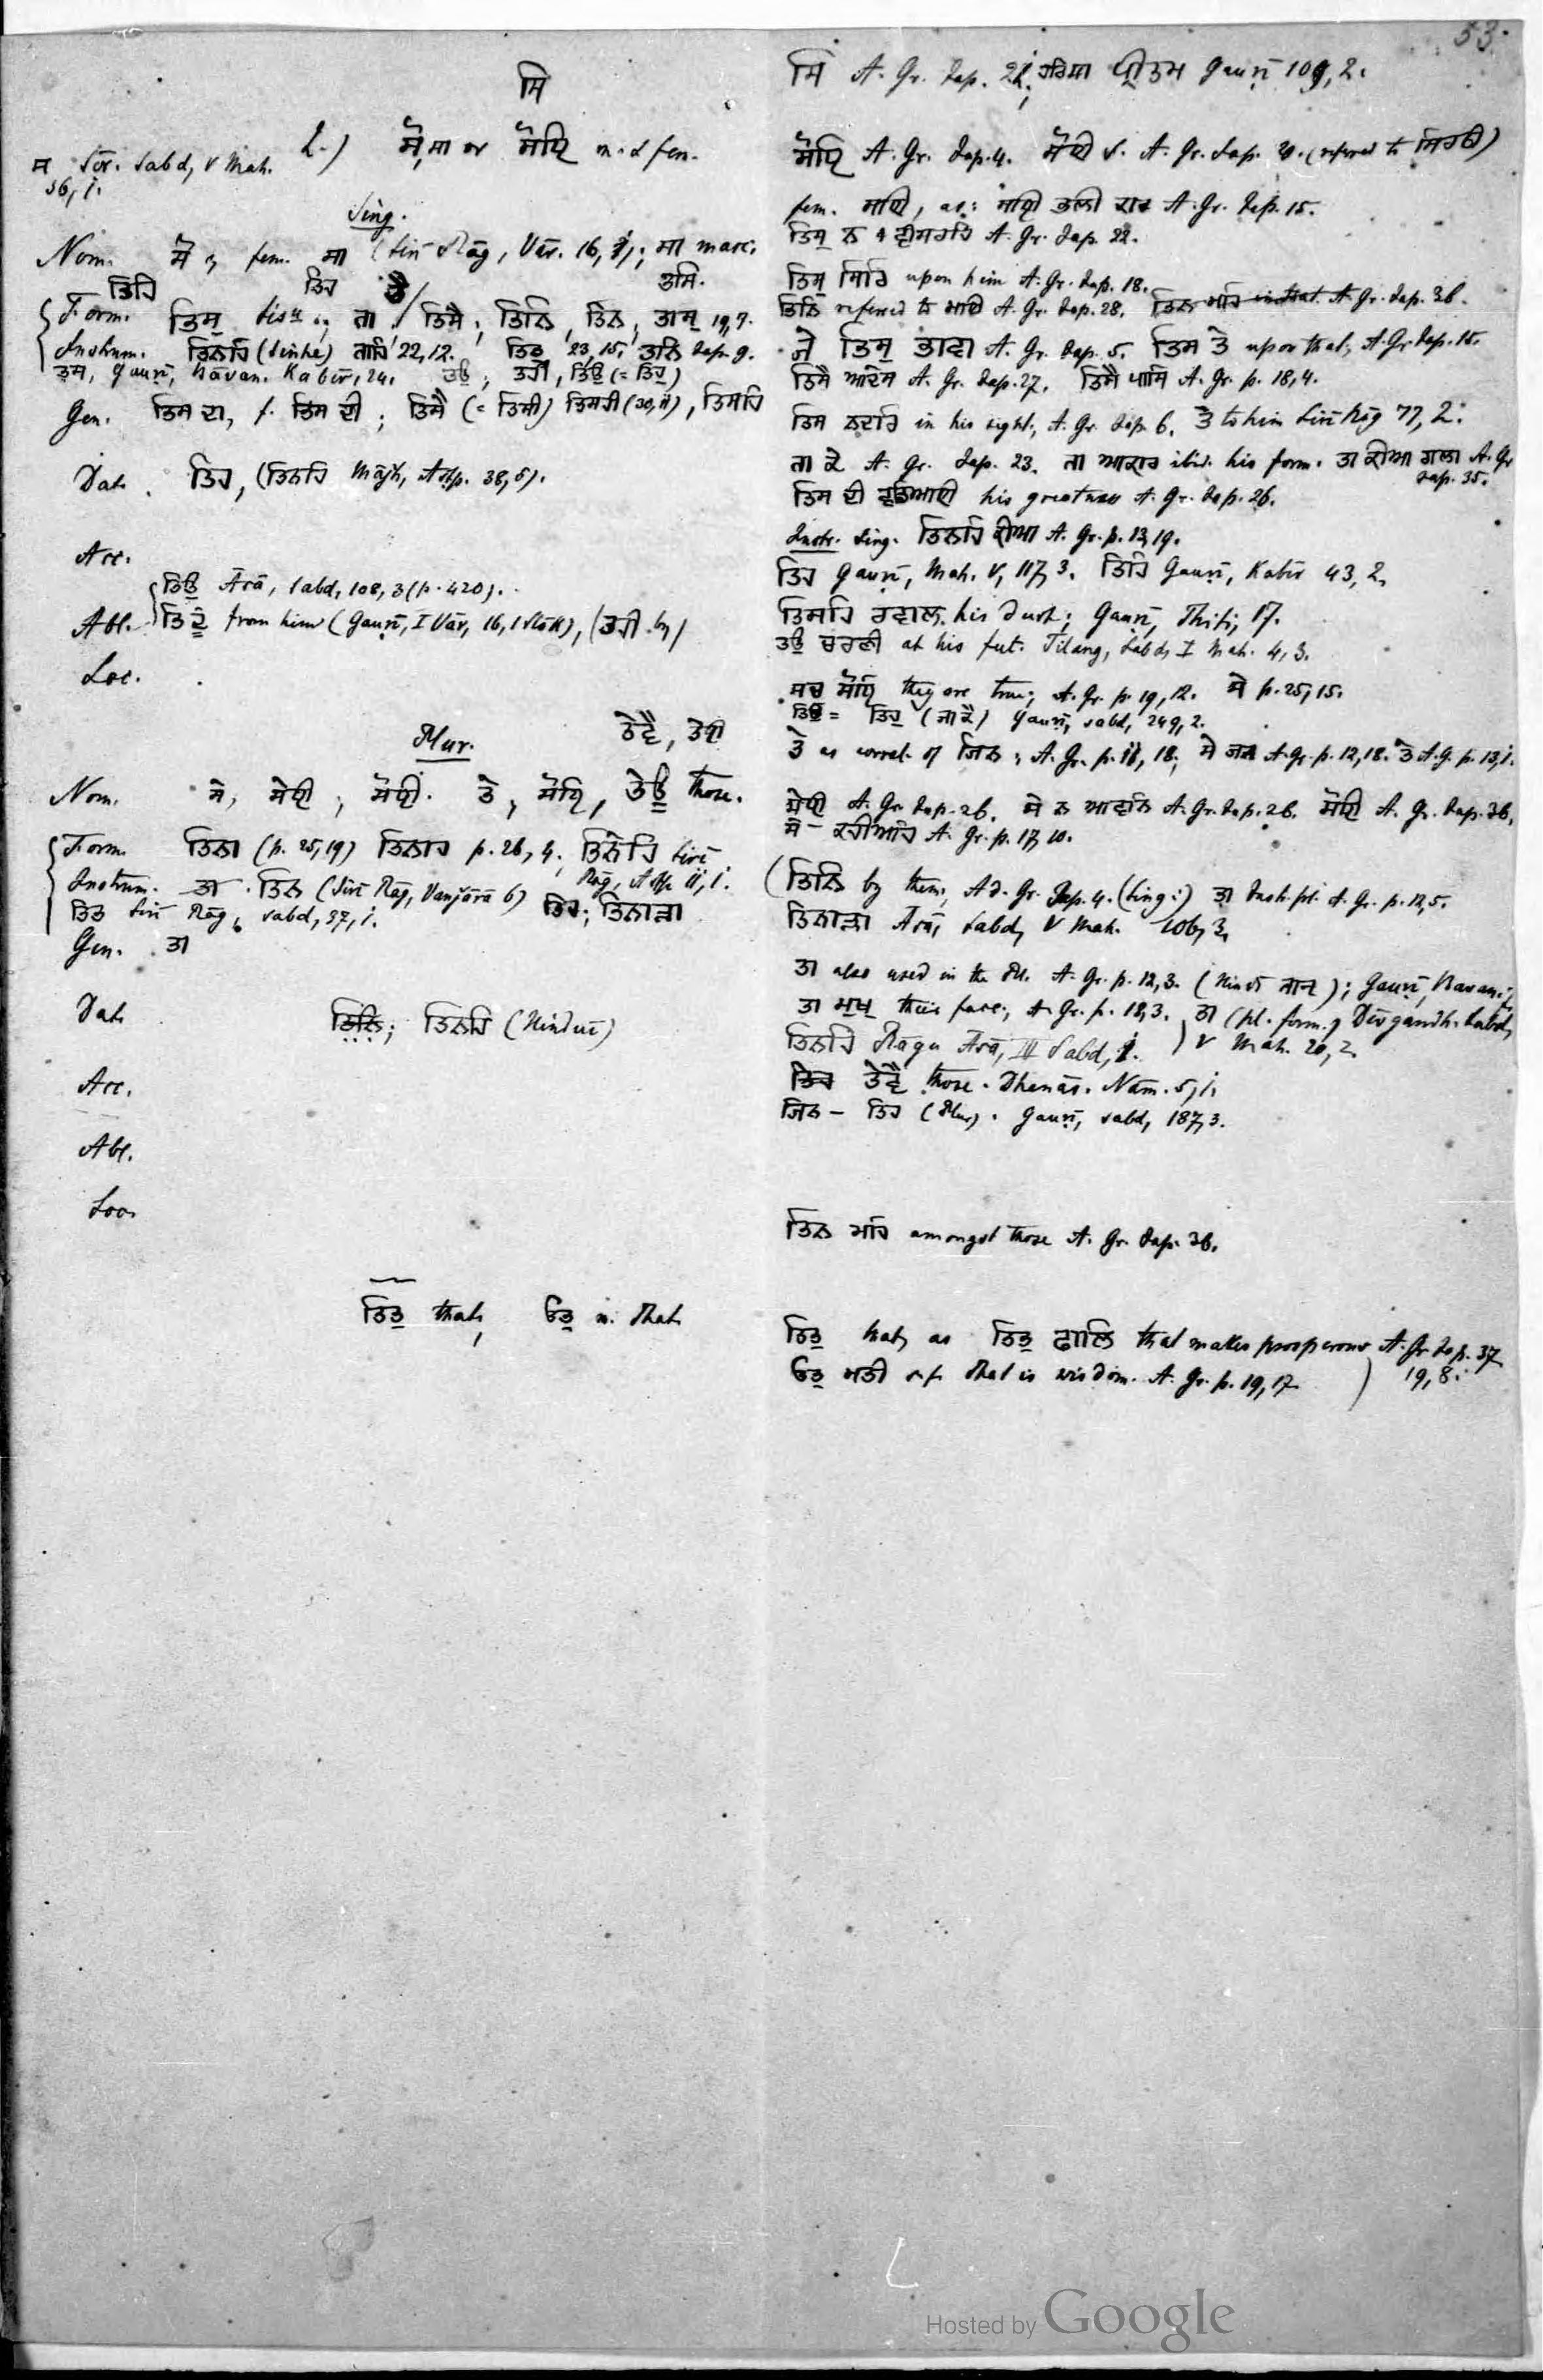 53.
ਸਿ
2.) ਸੋ, ਸਾ or ਸੋਇ m. & fem.
ਸ Sor. Sabd, V Mah.
36, 1.
Sing.
Nom. ਸੋ fem. ਸਾ (Siri Rāg, Vār. 16, 1; ਸਾ masc.
ਤਿਹਿ ਤਿਹ ਤੈ ਤਸਿ.
Form. ਤਿਸੁ tisu ; ਤਾ ; ਤਿਸੈ ; ਤਿਨਿ, ਤਿਨ, ਤਾਸੁ 19, 7.
Instrum. ਤਿਨਹਿ ਤਾਹਿ 22, 12. ਤਿਤੁ 23, 15. ਤੁਨਿ Jap. 9.
ਤਸ, Gauṛī, Bāvan. Kabīr, 24. ਤਉ ; ਤਹੀ, ਤਿਉ (= ਤਿਹੁ)
Gen. ਤਿਸ ਦਾ, f. ਤਿਸ ਦੀ ; ਤਿਸੈ (= ਤਿਸੀ) ਤਿਸਹੀ (30, 11), ਤਿਸਹਿ
Dat. ਤਿਹ, (ਤਿਨਹਿ Mājh, Aštp. 38, 5).
Acc.
ਤਿਉ Āsā, Sabd, 108, 3 (p. 420).
Abl. ਤਿਦੂ from him (Gauṛī, I Vār, 16, 1 Slōk), (ਤਹੀ by)
Loc.
Plur. ਤੇਵੈ, ਤੇਈ
Nom. ਸੇ, ਸੇਈ, ਸੋਈ. ਤੇ, ਸੋਇ, ਤੇਊ those.
Form. ਤਿਨਾ (p. 25, 19) ਤਿਨਾਹ p. 26, 4. ਤਿਨੇਹਿ Siri
Rāg, Aštp. 11, 1.
Instrum. ਤਾ. ਤਿਨ (Siri Rāg, Vanjārā 6)
ਤਿਤ Siri Rāg, sabd, 37, 1. ਤਿਹ; ਤਿਨਾੜਾ
Gen. ਤਾ
Dat. ਤਿਨਿ; ਤਿਨਹਿ (Hinduī)
Acc.
Abl.
Loc.
ਤਿਤੁ that, ਓਤੁ in that
ਸਿ A. Gr. Jap. 21; ਹਰਿਸਾ ਪ੍ਰੀਤਮ Gauṛī 109, 2.
ਸੋਇ A. Gr. Jap. 4. ਸੋਈ A. Gr. Jap. (referred to ਸਿਰਠੀ)
fem. ਸਾਈ, as: ਸਾਈ ਭਲੀ ਕਾਰ A. Gr. Jap. 15.
ਤਿਸੁ ਨ ਵੀਸਰਹਿ A. Gr. Jap. 22.
ਤਿਸੁ ਸਿਰਿ upon him A. Gr. Jap. 18.
ਤਿਨਿ referred to ਮਾਇ A. Gr. Jap. 28. ਤਿਨ ਮਹਿ in that A. Gr. Jap. 36.
ਜੇ ਤਿਸੁ ਭਾਵਾ A. Gr. Jap. 5. ਤਿਸ ਤੇ upon that, A. Gr. Jap. 15.
ਤਿਸੈ ਆਦੇਸ A. Gr. Jap. 27. ਤਿਸੈ ਪਾਸਿ A. Gr. p. 18, 4.
ਤਿਸ ਨਦਰਿ in his sight, A. Gr. Jap. 6. ਤੈ to him Siri Rāg 77, 2.
ਤਾ ਕੇ A. Gr. Jap. 23. ਤਾ ਆਕਾਰ ibid. his form. ਤਾ ਕੀਆ ਗਲਾ A. Gr.
Jap. 35.
ਤਿਸ ਦੀ ਵਡਿਆਈ his greatness A. Gr. Jap. 26.
Instr. Sing. ਤਿਨਹਿ ਕੀਆ A. Gr. p. 13, 19.
ਤਿਹ Gauṛī, Mah. V, 117, 3. ਤਿਹਿ Gauṛī, Kabīr 43, 2.
ਤਿਸਹਿ ਰਵਾਲ his dust; Gauṛī, Thitī, 17.
ਤਉ ਚਰਣੀ at his feet. Tilang, Sabd, I Mah. 4, 3.
ਸਚ ਸੋਇ they are true; A. Gr. p. 19, 12. ਸੇ p. 25, 15.
ਤਿਉ = ਤਿਹੁ (ਜਾਕੈ) Gauṛī, sabd, 249, 2.
ਤੇ as correl. of ਜਿਨ; A. Gr. p. 11, 18. ਸੇ ਜਨ A. Gr. p. 12, 18. ਤੇ A. G. p. 13, 1.
ਸੇਈ A. Gr. Jap. 26. ਸੇ ਨ ਆਵਨਿ A. Gr. Jap. 26. ਸੋਈ A. Gr. Jap. 36.
ਸੇ – ਕਹੀਅਹਿ A. Gr. p. 17, 10.
(ਤਿਨਿ by them, Ad. Gr. Jap. 4. (Sing.) ਤਾ Instr. pl. A. Gr. p. 12, 5.
ਤਿਨਾੜਾ Āsā, Sabd, V Mah. 106, 3.
ਤਾ also used in the Pl. A. Gr. p. 12, 3. (Hindī); Gauṛī, Bavan.
ਤਾ ਮੁਖ their face, A. Gr. p. 18, 3. ਤਾ (pl. form.) Dēvgandh. Sabd,
V Mah. 20, 2.
ਤਿਨਹਿ Rāgu Āsā, III Sabd, 1.
ਤਿਹ ਤੇਵੈ those. Dhanās. Nām. 5, 1.
ਜਿਨ – ਤਿਹ (Plur). Gauṛī, sabd, 187, 3.
ਤਿਨ ਮਹਿ amongst those A. Gr. Jap. 36.
ਤਿਤੁ that, as ਤਿਤੁ ਢਾਲਿ that makes prosperous A. Gr. Jap. 37
ਓਤੁ ਮਤੀ that is wisdom. A. Gr. p. 19, 17. ) 19, 8.
Hosted by Google